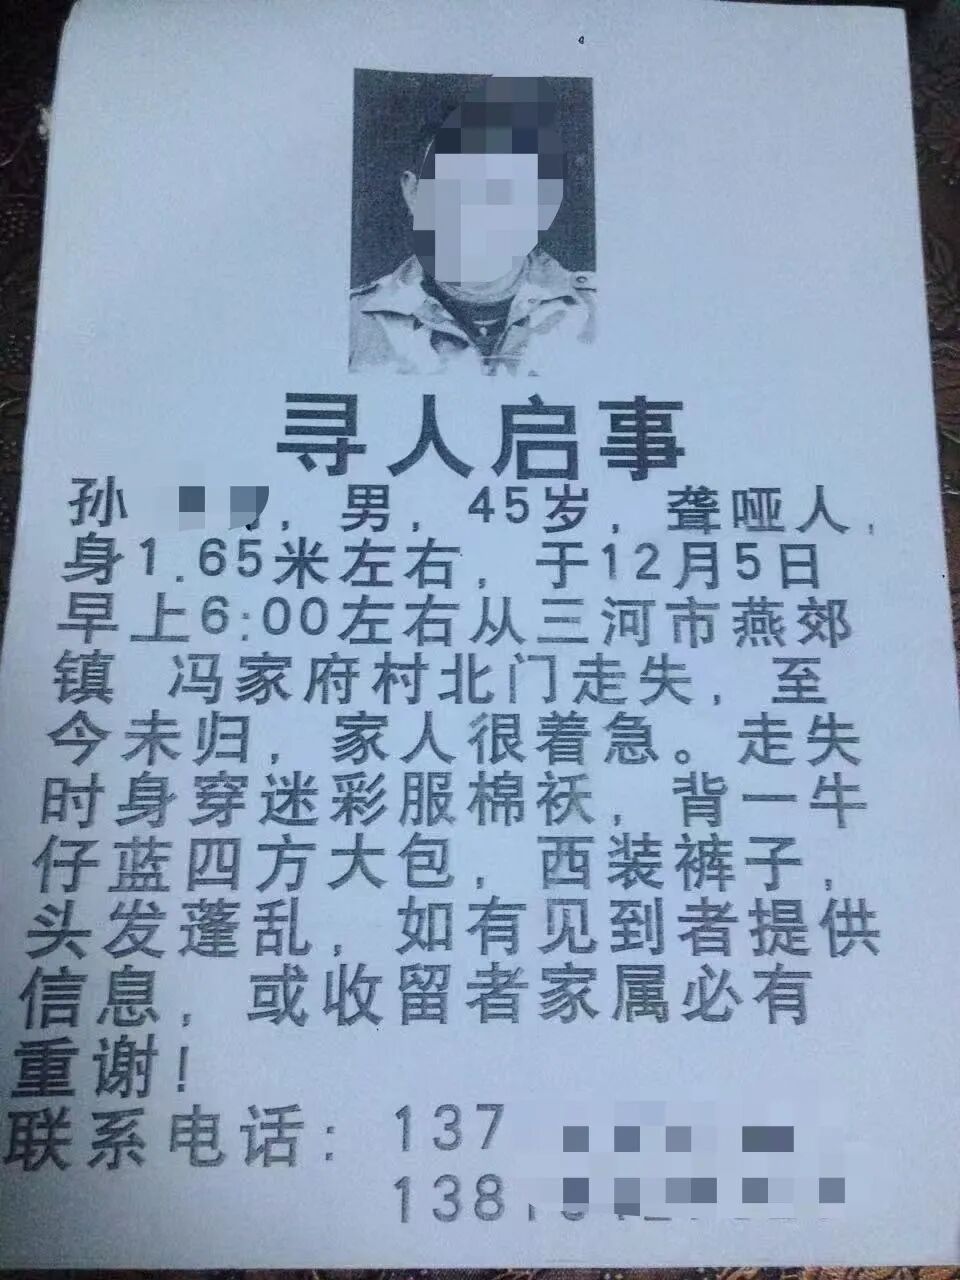 寻人启事
孙 , 男, 45岁, 聋哑人,
身1.65米左右, 于12月5日
早上6:00左右从三河市燕郊
镇 冯家府村北门走失, 至
今未归, 家人很着急。走失
时身穿迷彩服棉袄, 背一牛
仔蓝四方大包, 西装裤子,
头发蓬乱, 如有见到者提供
信息, 或收留者家属必有
重谢!
联系电话: 137
138